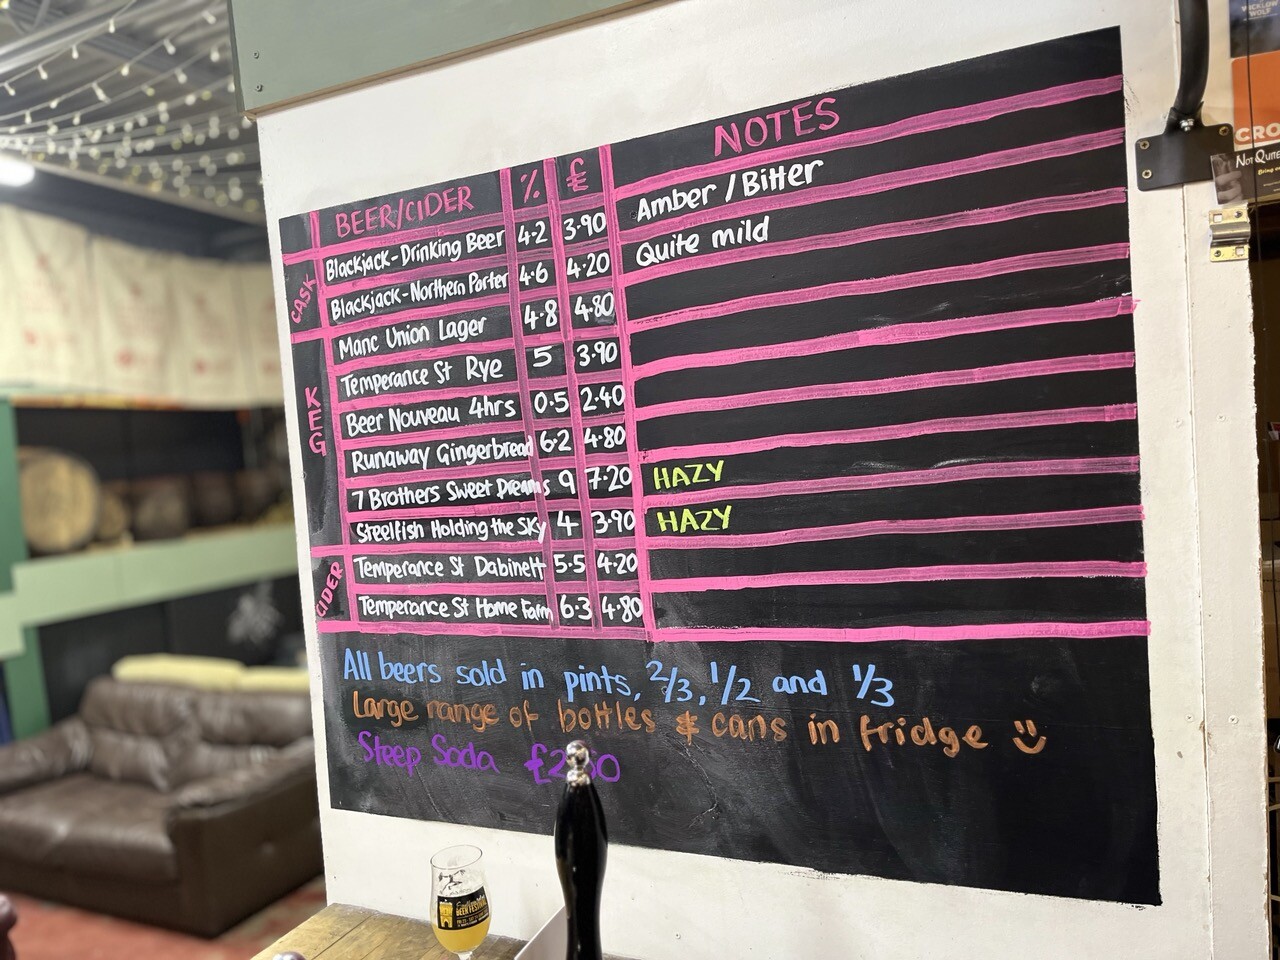 BEER/CIDER % £ NOTES
CASK
Blackjack-Drinking Beer 4.2 3.90 Amber / Bitter
Blackjack-Northern Porter 4.6 4.20 Quite mild
KEG
Manc Union Lager 4.8 4.80
Temperance St Rye 5 3.90
Beer Nouveau 4hrs 0.5 2.40
Runaway Gingerbread 6.2 4.80
7 Brothers Sweet Dreams 9 7.20 HAZY
Steelfish Holding the Sky 4 3.90 HAZY
CIDER
Temperance St Dabinett 5.5 4.20
Temperance St Home Farm 6.3 4.80
All beers sold in pints, 2/3, 1/2 and 1/3
Large range of bottles & cans in fridge
Steep Soda
WICKLOW
WOLF
CRO
NOT QUITE
BEER FESTIVAL